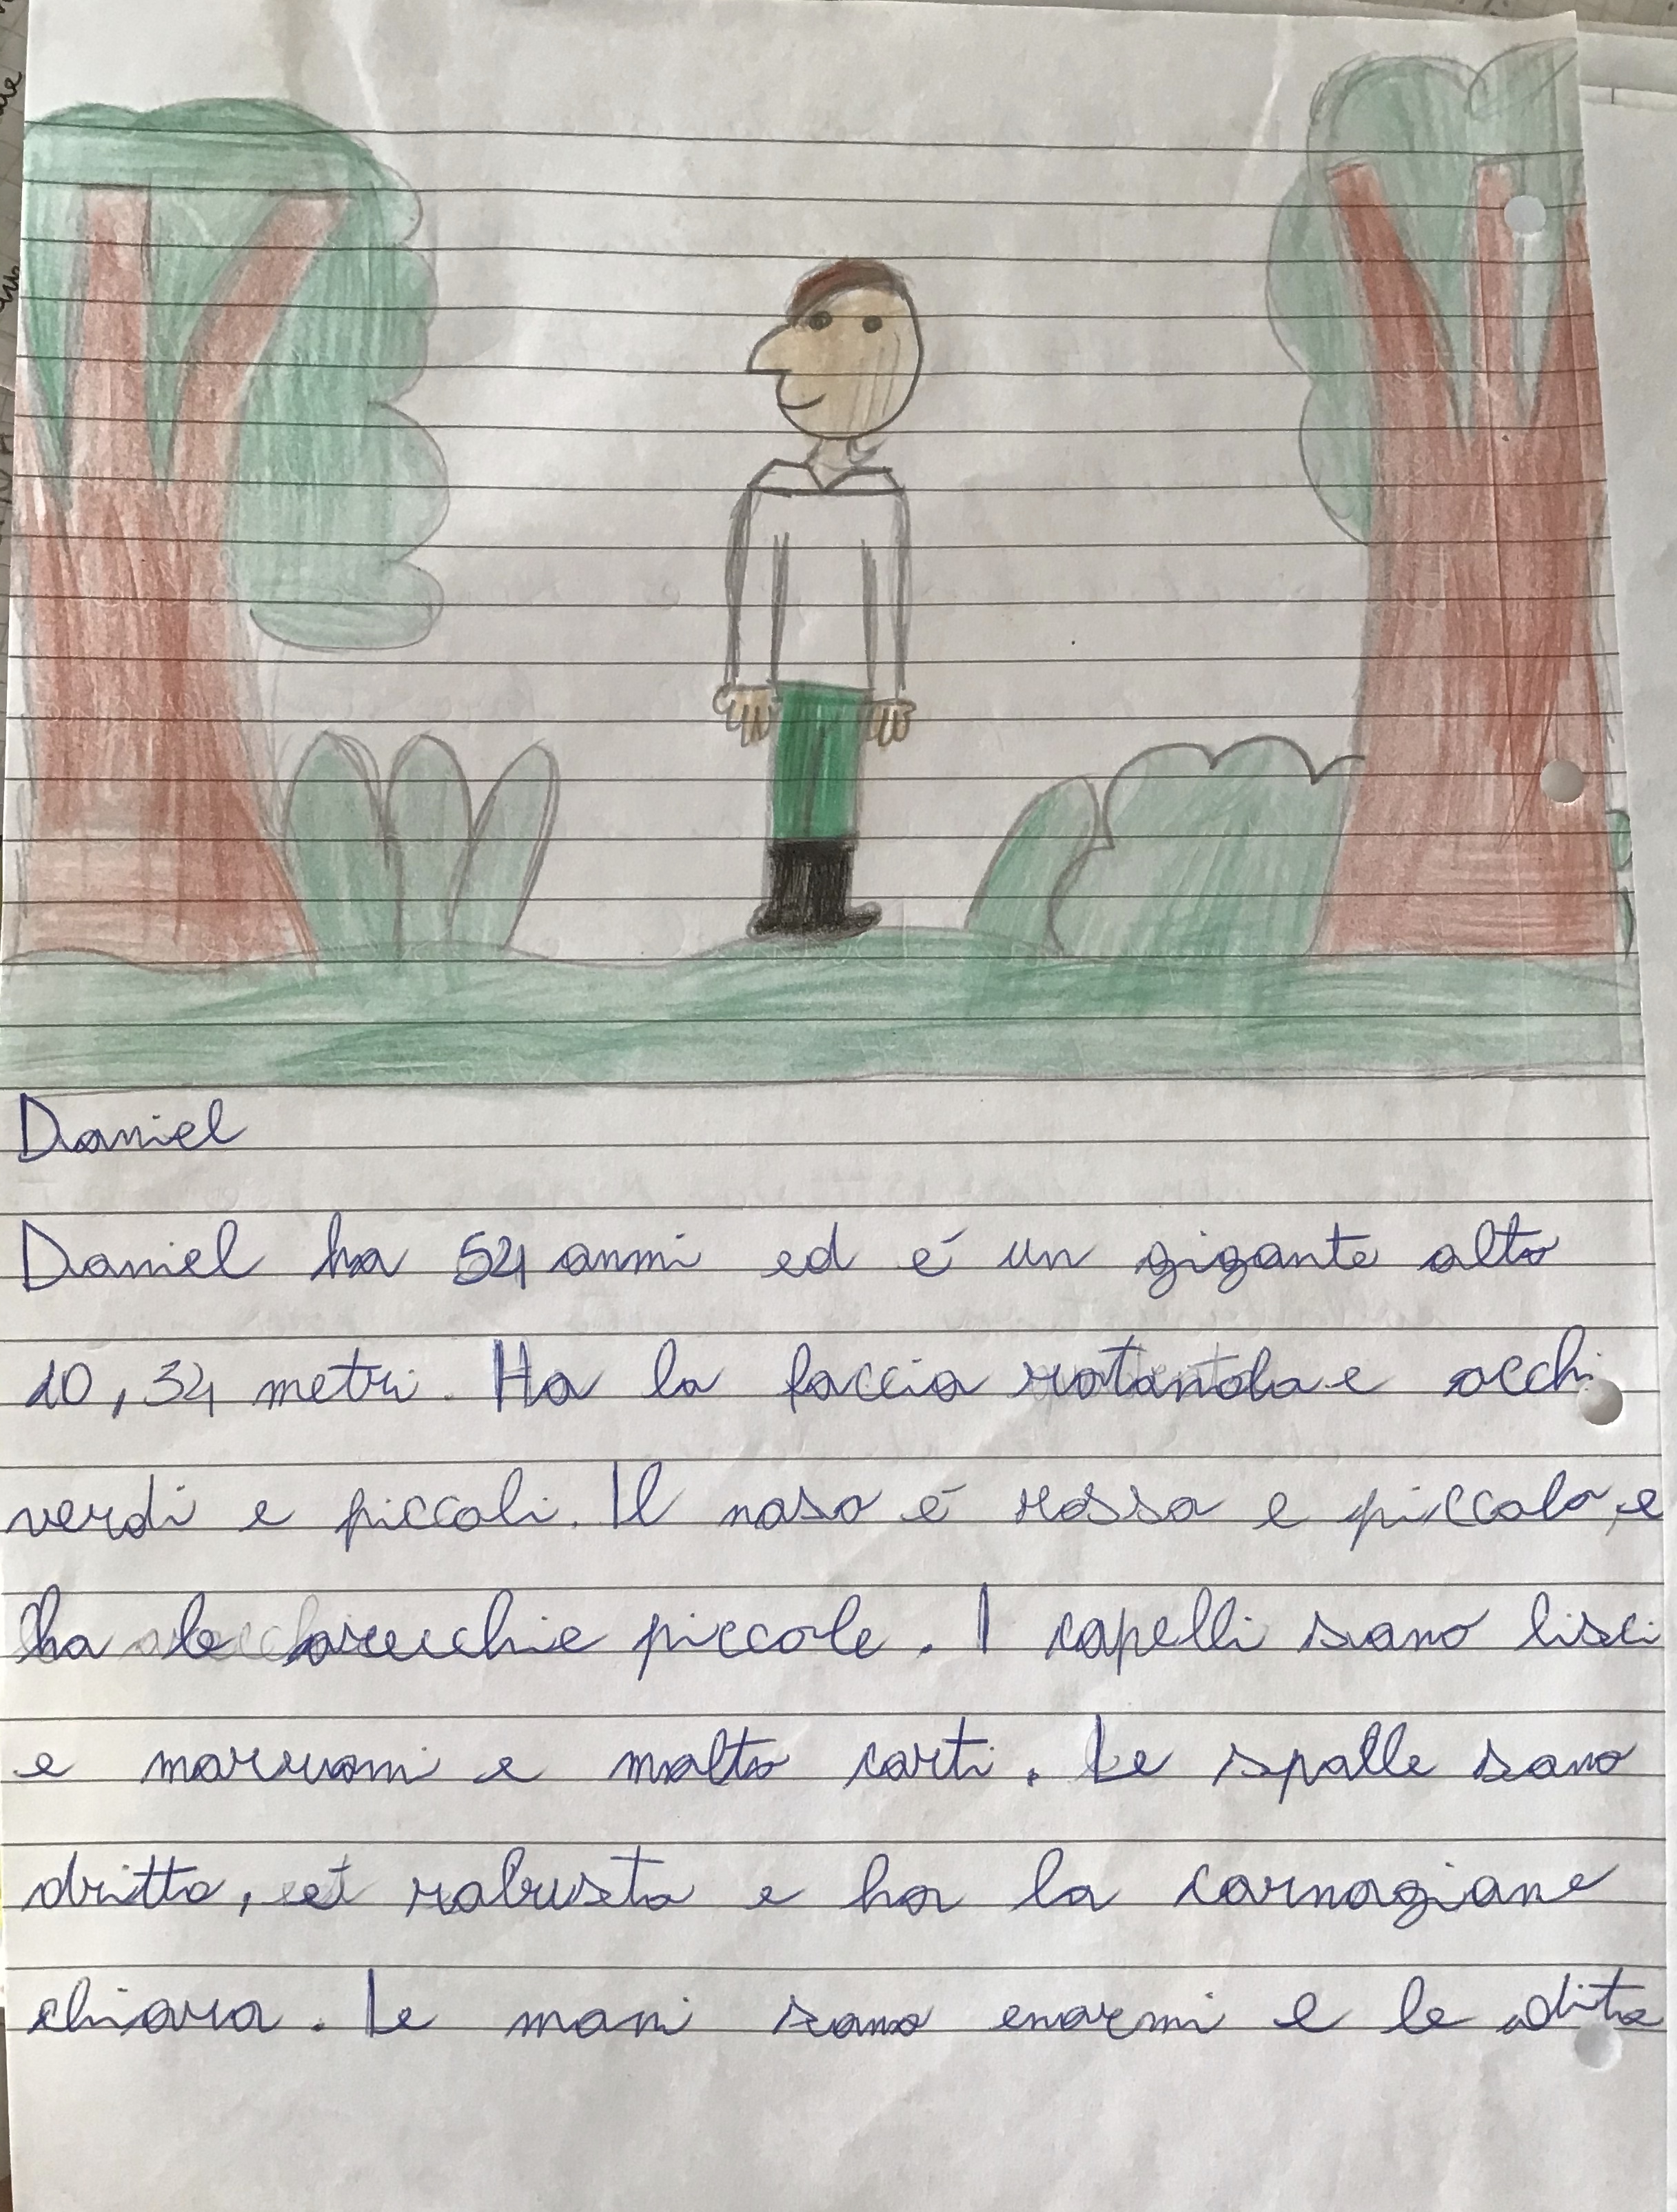 Daniel
Daniel ha 54 anni ed é un gigante alto
10,34 metri. Ha la faccia rotonda e occhi
verdi e piccoli. Il naso é rosso e piccolo, e
ha le orecchie piccole. I capelli sono lisci
e marroni e molto corti. Le spalle sono
dritte, é robusto e ha la carnagione
chiara. Le mani sono enormi e le dita